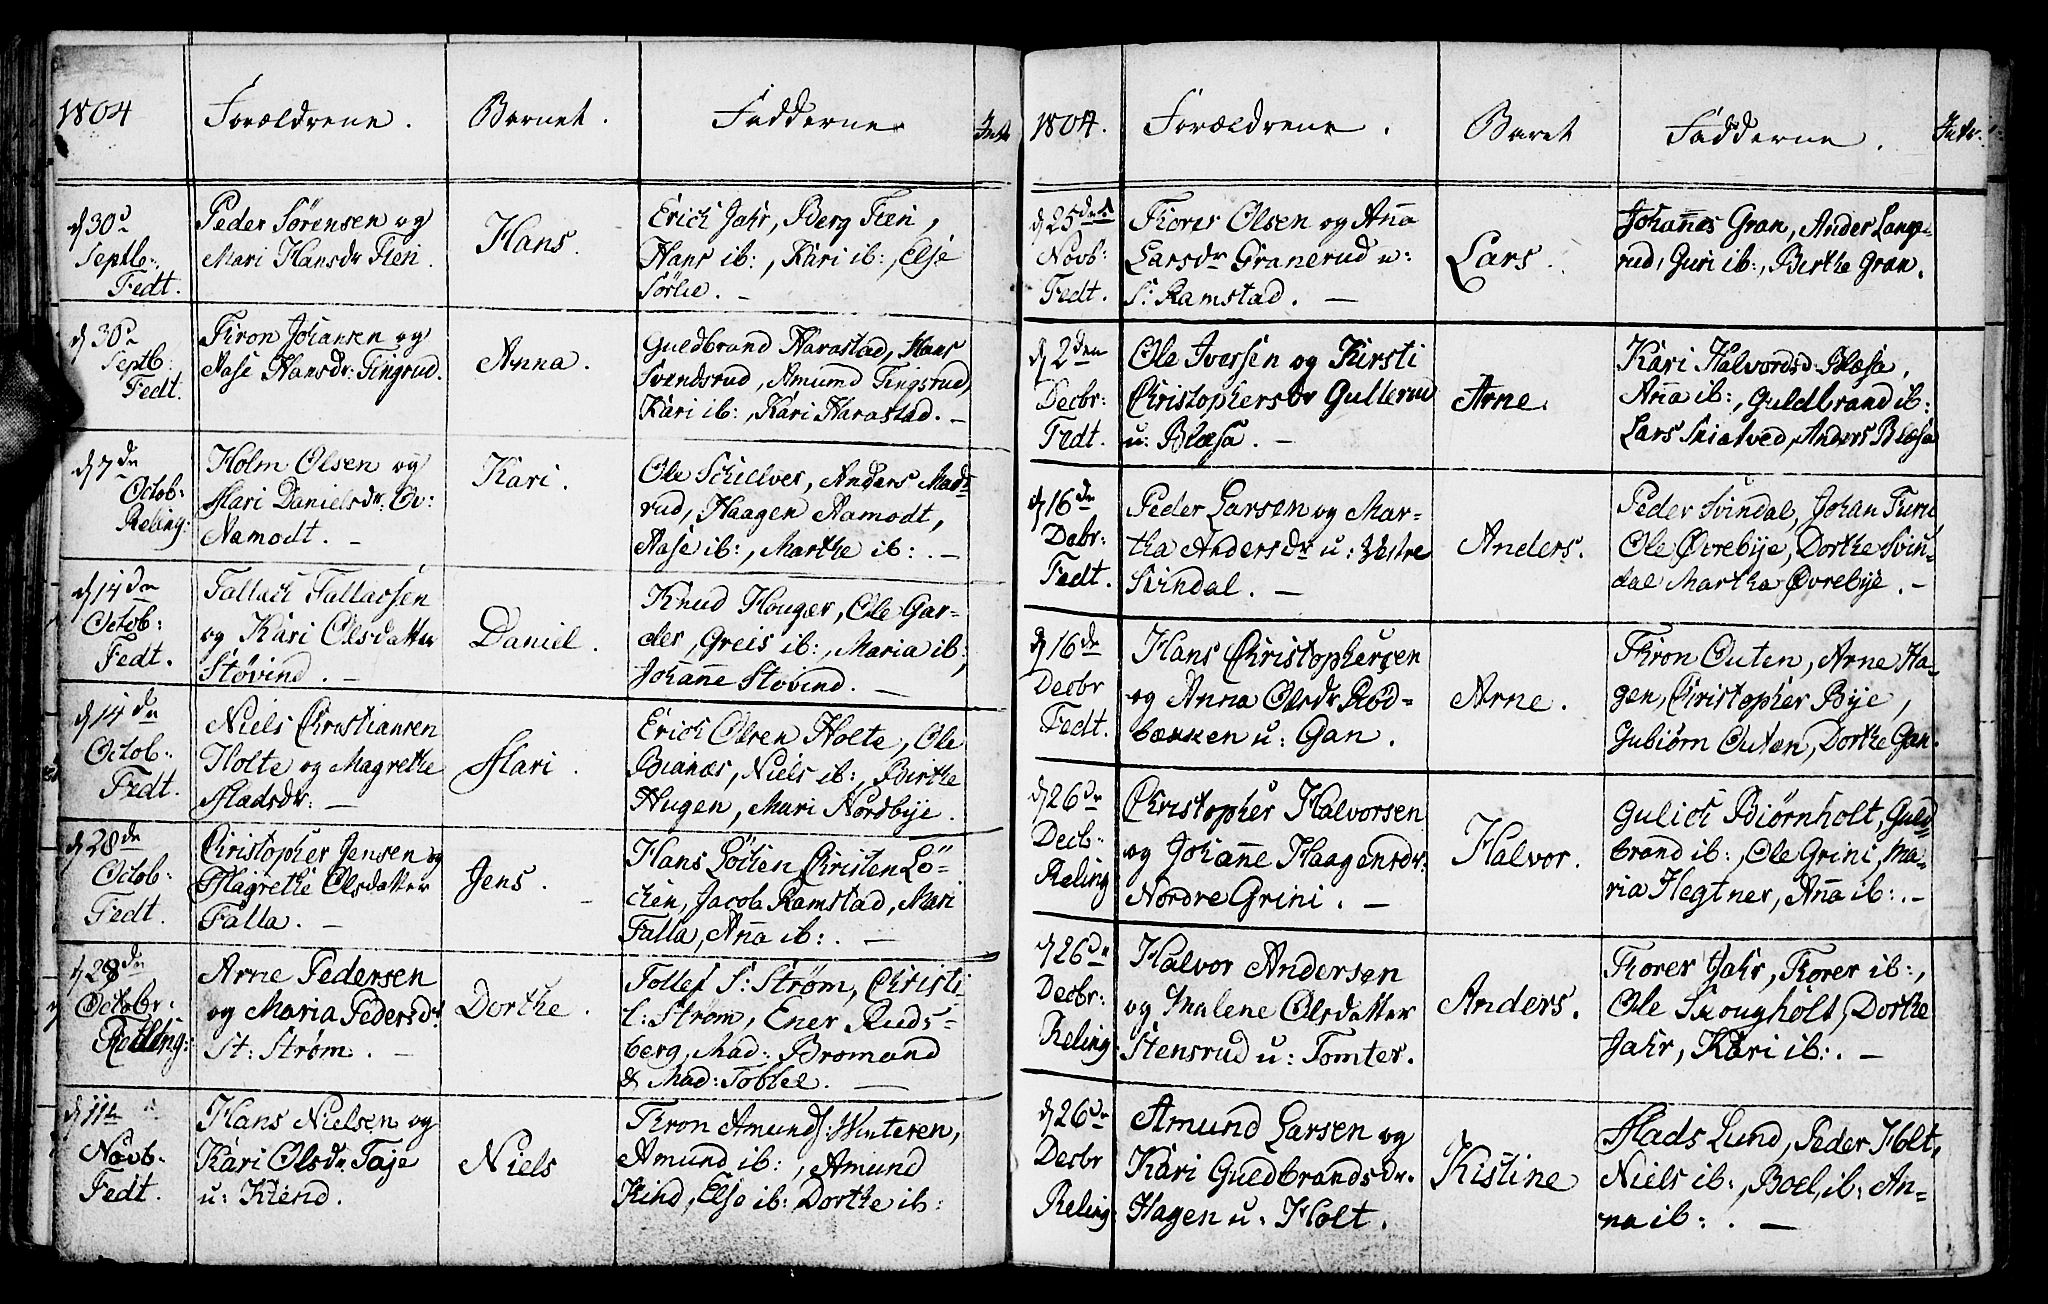 1804
Forældrene.
Barnet.
Fadderne
Int
d 30d
Septb:
Fedt.
Peder Sørensen og
Mari Hansdr Tien.
Hans.
Erich Jahr, Berg Tien,
Hans ib:, Kari ib:, Elje
Sørlie. —
d 30d
Septb:
Fedt.
Thron Johansen og
Aase Hansdr: Tingrud.
Anna.
Guldbrand Harastad, Hans
Svendsrud, Amund Tingsrud,
Kari ib:, Kari Harastad. —
d 7de
Octob:
Reling:
Holm Olsen og
Mari Danielsdr: Ov:
Namodt. —
Kari.
Ole Schilver, Anders Mads-
rud, Haagen Aamodt,
Aase ib:, Marthe ib:. —
d 14de
Octob:
Fedt.
Tallach Tallacsen
og Kari Olsdatter
Støvind. —
Daniel.
Knud Houger, Ole Gar-
der, Greis ib:, Maria ib:,
Johanne Stovind. —
d 14de
Octob:
Fedt.
Niels Christiansen
Holte og Magrethe
Madsdr: —
Mari.
Erich Olsen Holte, Ole
Bianæs, Niels ib:, Birthe
Hugen, Mari Nordbye.
d 28de
Octob:
Fedt.
Christopher Jensen og
Magrethe Olsdatter
Falla. —
Jens. -
Hans Löchen, Christen Lö-
chen, Jacob Ramstad, Mari
Falla, Aña ib:. —
d 28de
Octobr:
Relling:
Arne Pedersen
og Maria Pedersdr
St: Strøm. —
Dorthe.
Tollef S: Strøm, Christi
l: Strøm, Ener Ruds-
berg, Mad: Bromand
& Mad: Tobiel. —
d 11te
Novb:
Fedt.
Hans Nielsen og
Kari Olsdr Taje
u: Kiend.
Niels
Thron Amunds: Winteren,
Amund ib:, Amund
Kind, Eljo ib: Dorthe ib:
1804.
Forældrene.
Baret
Fadderne.
Intr:
d 25de
Novb:
Fedt.
Thorer Olsen og Aña
Larsdr Granerud u:
S: Ramstad. —
Lars.
Johañes Gran, Ander Lange-
rud, Guri ib:, Birthe Gran.
d 2den
Decbr:
Fedt.
Ole Iversen og Kirsti
Christophersdr Gullerud
u: Blæsa. —
Arne.
Kari Halvordsd: Blæsa,
Aña ib:, Guldbrand ib:
Lars Skiatved, Anders Blæsa
d 16de
Debr:
Fedt.
Peder Larsen og Mar-
tha Andersdr u: Vestre
Svindal. —
Anders.
Peder Svindal, Johan Turn,
Ole Øvrebye, Dorthe Svin-
dal Martha Øvrebye. —
d 16de
Decbr
Fedt.
Hans Christophersen
og Anna Olsdr Rød-
bækken u: Gan.
Arne.
Thron Outen, Arne Ha-
gen, Christopher Bye,
Gubiørn Outen, Dorthe Gan.
d 26de
Decb:
Reling
Christopher Halvorsen
og Johañe Haagensdr:
Nordre Grini. —
Halvor.
Gulich Biørnholt, Guld-
brand ib:, Ole Grini, Ma-
ria Hegtner, Aña ib:. —
d 26de
Decbr:
Reling:
Halvor Andersen
og Malene Olsdatter
Stensrud u: Tomter.
Anders.
Thorer Jahr, Thorer ib:,
Ole Skougholt, Dorthe
Jahr, Kari ib:. —
d 26de
Decbr
Reling:
Amund Larsen og
Kari Guldbrandsdr.
Hagen u: Holt.
Kistine
Mads Lund, Peder Holt,
Niels ib:, Boel, ib: An-
na ib:. —